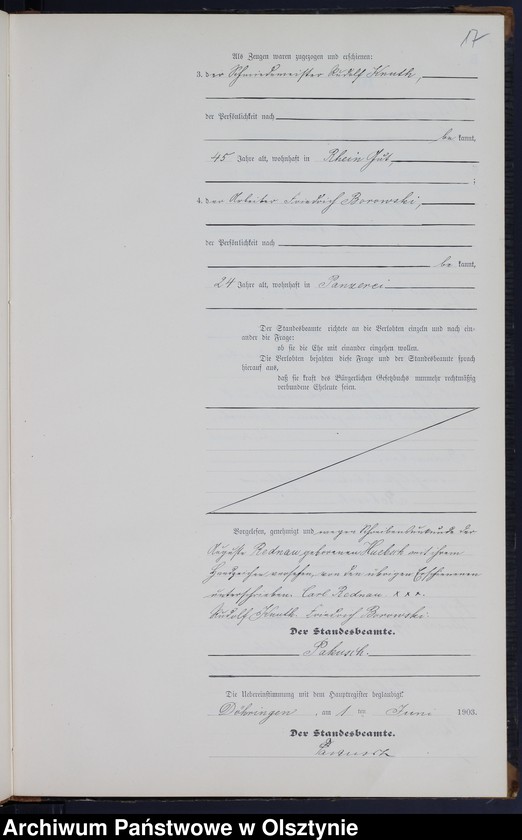 17
Als Zeugen waren zugezogen und erschienen:
3. der Schmiedemeister Rudolf Knuth,
der Persönlichkeit nach
be kannt,
45 Jahre alt, wohnhaft in Rhein Gut,
;
4. der Arbeiter Friedrich Borowski,
der Persönlichkeit nach
be kannt,
24 Jahre alt, wohnhaft in Panzerei
Der Standesbeamte richtete an die Verlobten einzeln und nach ein-
ander die Frage:
ob sie die Ehe mit einander eingehen wollen.
Die Verlobten bejahten diese Frage und der Standesbeamte sprach
hierauf aus,
daß sie kraft des Bürgerlichen Gesetzbuchs nunmehr rechtmäßig
verbundene Eheleute seien.
Vorgelesen, genehmigt und wegen Schreibensunkunde der
Auguste Rednau geborenen mit ihrem
Handzeichen versehen, von den übrigen Erschienenen
unterschrieben. Carl Rednau. x x x.
Rudolf Knuth. Friedrich Borowski.
Der Standesbeamte.
Pakusch.
Die Uebereinstimmung mit dem Hauptregister beglaubigt
Döhringen, am 1 ten Juni 1903.
Der Standesbeamte.
Pakusch
Archiwum Państwowe w Olsztynie